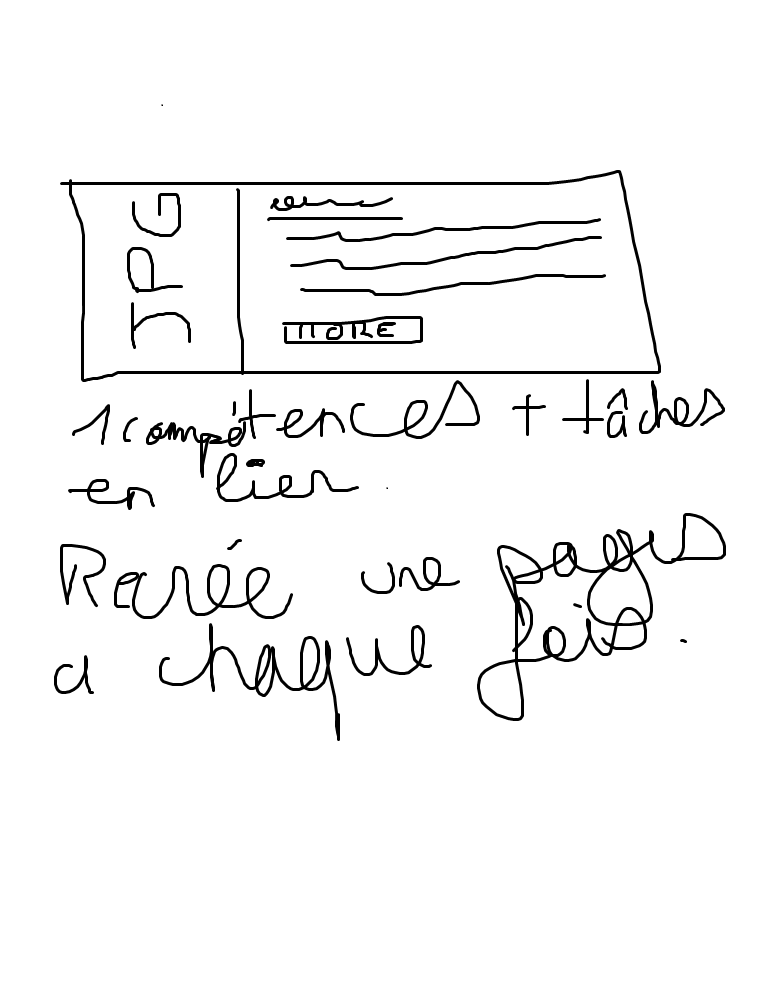 JPG
MORE
1 compétences + tâches
en lien
Recrée une pages
a chaque fois.